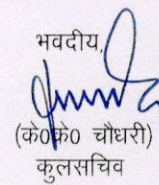 भवदीय,
(के0के0 चौधरी)
कुलसचिव